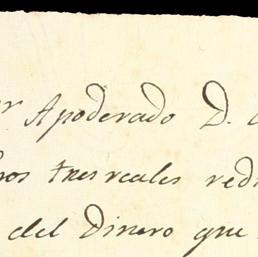 Apoderado D.
tres reales
del Dinero que